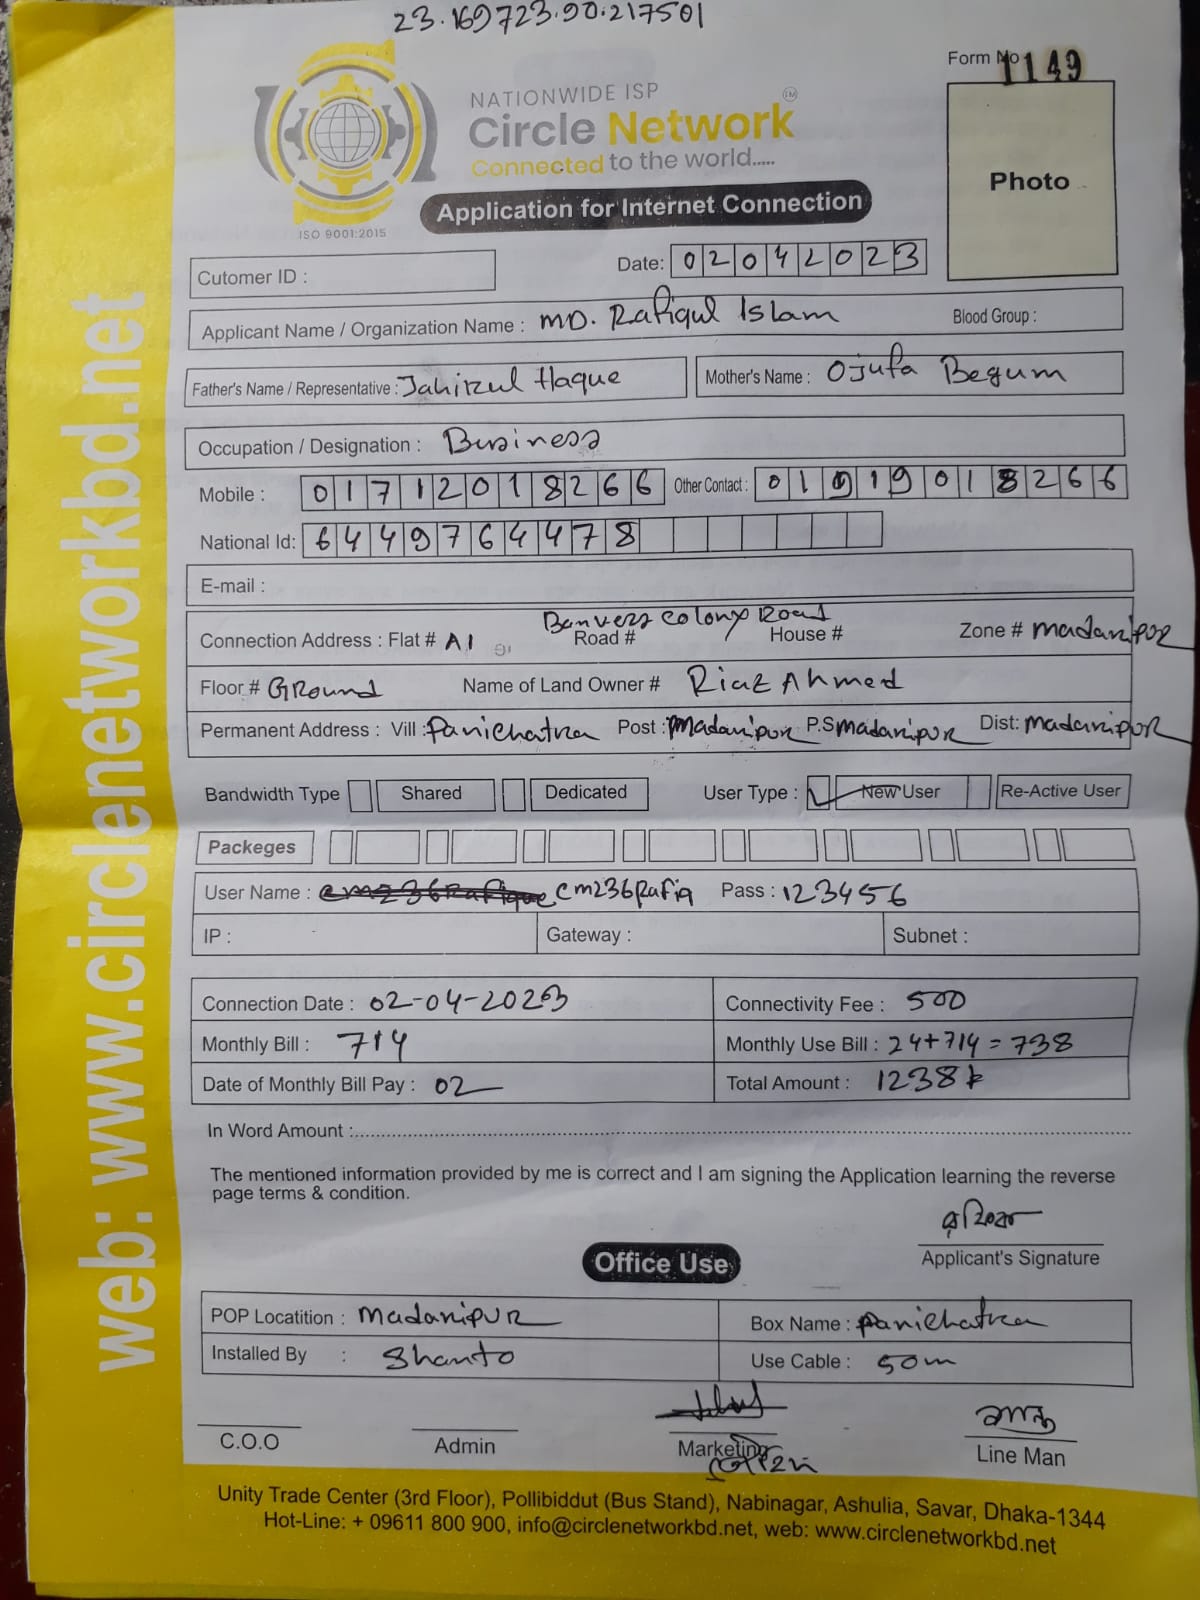 23.169723.90.217501
Form No 1149
NATIONWIDE ISP
Circle Network
Connected to the world.....
Photo
Application for Internet Connection
ISO 9001:2015
Cutomer ID :
Date: 02042023
Applicant Name / Organization Name : MD. Rafiqul Islam Blood Group :
Father's Name / Representative : Jahirul Haque Mother's Name : Ojufa Begum
Occupation / Designation : Business
Mobile : 01712018266 Other Contact : 01919018266
National Id: 6449764478
E-mail :
Connection Address : Flat # A1 Road # Colony Road House # Zone # Madaripur
Floor # GRound Name of Land Owner # Riaz Ahmed
Permanent Address : Vill : Panichatra Post : Madaripur P.S Madaripur Dist: Madaripur
Bandwidth Type Shared Dedicated User Type : New User Re-Active User
Packeges
User Name : cmz36Rafique cmz36Rafiq Pass : 123456
IP : Gateway : Subnet :
Connection Date : 02-04-2023 Connectivity Fee : 500
Monthly Bill : 714 Monthly Use Bill : 24+714 = 738
Date of Monthly Bill Pay : 02 Total Amount : 1238
In Word Amount :
The mentioned information provided by me is correct and I am signing the Application learning the reverse
page terms & condition.
Applicant's Signature
Office Use
POP Locatition : Madaripur Box Name : Panichatra
Installed By : Shanto Use Cable : 50m
C.O.O Admin Marketing Line Man
Unity Trade Center (3rd Floor), Pollibiddut (Bus Stand), Nabinagar, Ashulia, Savar, Dhaka-1344
Hot-Line: + 09611 800 900, info@circlenetworkbd.net, web: www.circlenetworkbd.net
web: www.circlenetworkbd.net